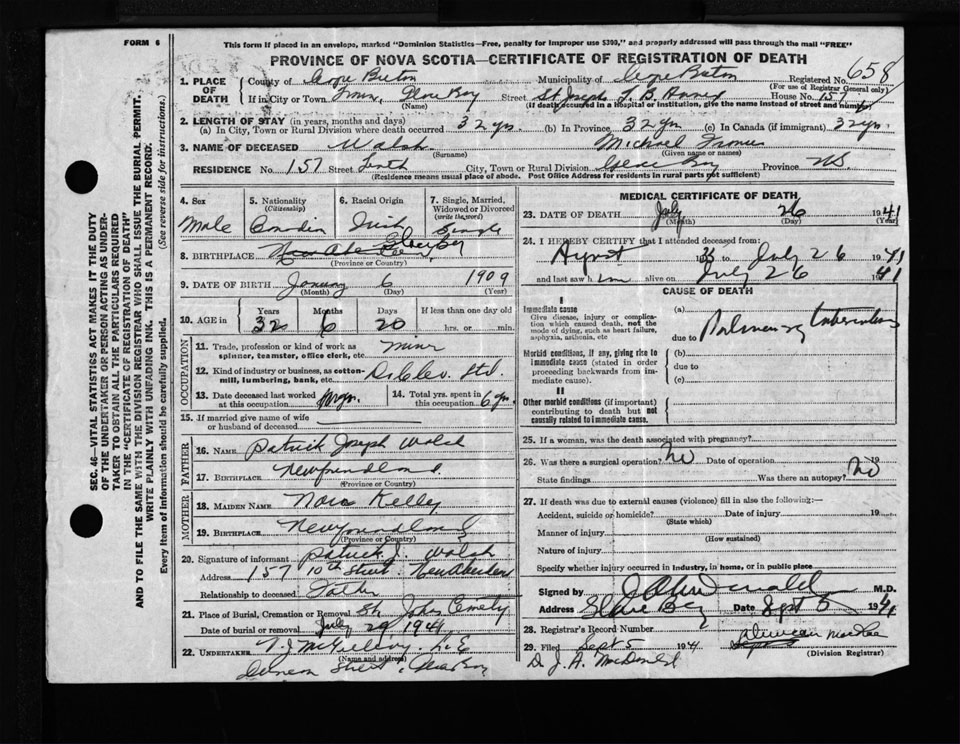 FORM 6
This form if placed in an envelope, marked "Dominion Statistics—Free, penalty for improper use $300," and properly addressed will pass through the mail "FREE"
PROVINCE OF NOVA SCOTIA—CERTIFICATE OF REGISTRATION OF DEATH
SEC. 46—VITAL STATISTICS ACT MAKES IT THE DUTY
OF THE UNDERTAKER OR PERSON ACTING AS UNDER-
TAKER TO OBTAIN ALL THE PARTICULARS REQUIRED
IN THE "CERTIFICATE OF REGISTRATION OF DEATH"
AND TO FILE THE SAME WITH THE DIVISION REGISTRAR WHO SHALL ISSUE THE BURIAL PERMIT.
WRITE PLAINLY WITH UNFADING INK. THIS IS A PERMANENT RECORD.
Every item of information should be carefully supplied. (See reverse side for instructions.)
1. PLACE OF DEATH
County of Cape Breton Municipality of Cape Breton Registered No. 658
(For use of Registrar General only)
If in City or Town Glace Bay Street St Joseph T. B. Annex House No. 157
(Name) (If death occurred in a hospital or institution, give the name instead of street and number)
2. LENGTH OF STAY (in years, months and days)
(a) In City, Town or Rural Division where death occurred 32 yrs. (b) In Province 32 yrs (c) In Canada (if immigrant) 32 yrs.
3. NAME OF DECEASED Walsh Michael
(Surname) (Given name or names)
RESIDENCE No. 157 Street Tenth City, Town or Rural Division Glace Bay Province NS
(Residence means usual place of abode. Post Office Address for residents in rural parts not sufficient)
4. Sex Male
5. Nationality (Citizenship) Canadian
6. Racial Origin Irish
7. Single, Married, Widowed or Divorced (write the word) Single
8. BIRTHPLACE New Aberdeen Glace Bay
(Province or Country)
9. DATE OF BIRTH January 6 1909
(Month) (Day) (Year)
10. AGE in Years 32 Months 6 Days 20 If less than one day old hrs. or min.
OCCUPATION
11. Trade, profession or kind of work as spinner, teamster, office clerk, etc. Miner
12. Kind of industry or business, as cotton-mill, lumbering, bank, etc.
13. Date deceased last worked at this occupation
14. Total yrs. spent in this occupation 6 yrs.
15. If married give name of wife or husband of deceased
FATHER
16. NAME Patrick Joseph Walsh
17. BIRTHPLACE Newfoundland
(Province or Country)
MOTHER
18. MAIDEN NAME Nora Kelley
19. BIRTHPLACE Newfoundland
(Province or Country)
20. Signature of informant Patrick J. Walsh
Address 157 10th Street New Aberdeen
Relationship to deceased Father
21. Place of Burial, Cremation or Removal St. Johns Cemetry
Date of burial or removal July 29 1941
22. UNDERTAKER
(Name and address)
Street, Glace Bay
MEDICAL CERTIFICATE OF DEATH
23. DATE OF DEATH July 26 1941
(Month) (Day) (Year)
24. I HEREBY CERTIFY that I attended deceased from:
August to July 26 1941
and last saw him alive on July 26 1941
CAUSE OF DEATH
I
Immediate cause
Give disease, injury or complication which caused death, not the mode of dying, such as heart failure, asphyxia, asthenia, etc
(a) Pulmonary tuberculosis
due to
Morbid conditions, if any, giving rise to immediate cause (stated in order proceeding backwards from immediate cause).
(b)
due to
(c)
II
Other morbid conditions (if important) contributing to death but not causally related to immediate cause.
25. If a woman, was the death associated with pregnancy?
26. Was there a surgical operation? No Date of operation 19
State findings Was there an autopsy? No
27. If death was due to external causes (violence) fill in also the following:—
Accident, suicide or homicide? Date of injury 19
(State which)
Manner of injury
(How sustained)
Nature of injury
Specify whether injury occurred in industry, in home, or in public place
Signed by M.D.
Address Glace Bay Date Sept 5 1941
28. Registrar's Record Number
29. Filed Sept 5 1941 Duncan MacRae
(Division Registrar)
D. J. A. McDonald